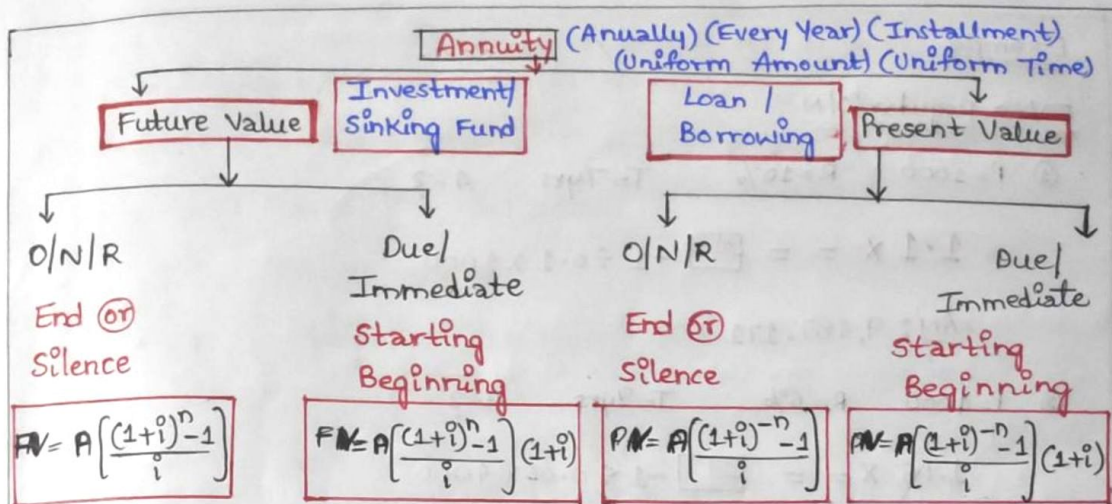 Annuity (Anually) (Every Year) (Installment)
(Uniform Amount) (Uniform Time)
Future Value
Investment/
Sinking Fund
Loan /
Borrowing
Present Value
O/N/R
End or
Silence
FV = A[((1+i)^n - 1)/i]
Due/
Immediate
Starting
Beginning
FV = A[((1+i)^n - 1)/i](1+i)
O/N/R
End or
Silence
PV = A[((1+i)^-n - 1)/i]
Due/
Immediate
Starting
Beginning
PV = A[((1+i)^-n - 1)/i](1+i)